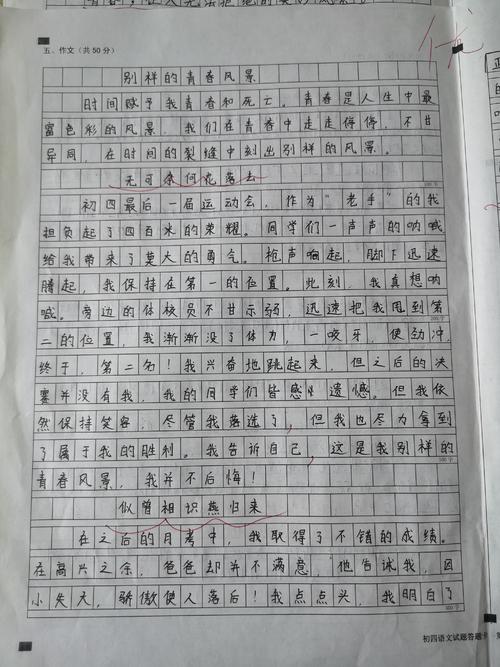 五、作文(共50分)
别样的青春风景
时间赋予我青春和死亡。青春是人生中最
富色彩的风景,我们在青春中走走停停,不甘
异同,在时间的裂缝中刻出别样的风景。
无可奈何花落去
100字
初四最后一届运动会,作为“老手”的我
担负起了四百米的荣耀。同学们一声声的呐喊
给我带来了莫大的勇气。枪声响起,脚下迅速
腾起,我保持在第一的位置。此刻,我真想呐
喊。旁边的体校员不甘示弱,迅速把我甩到第
200字
二的位置,我渐渐没了体力,一咬牙,使劲冲,
终于,第二名!我兴奋地跳起来,但之后的决
赛并没有我,我的同学们皆感惋遗憾。但我依
然保持笑容,尽管我落选了,但我也尽力拿到
了属于我的胜利。我告诉自己,这是我别样的
300字
青春风景,我并不后悔!
似曾相识燕归来
在之后的月考中,我取得了不错的成绩。
在高兴之余,爸爸却并不满意,他告诫我,因
小失大,骄傲使人落后!我点点头,我明白了
400字
初四语文试题答题卡